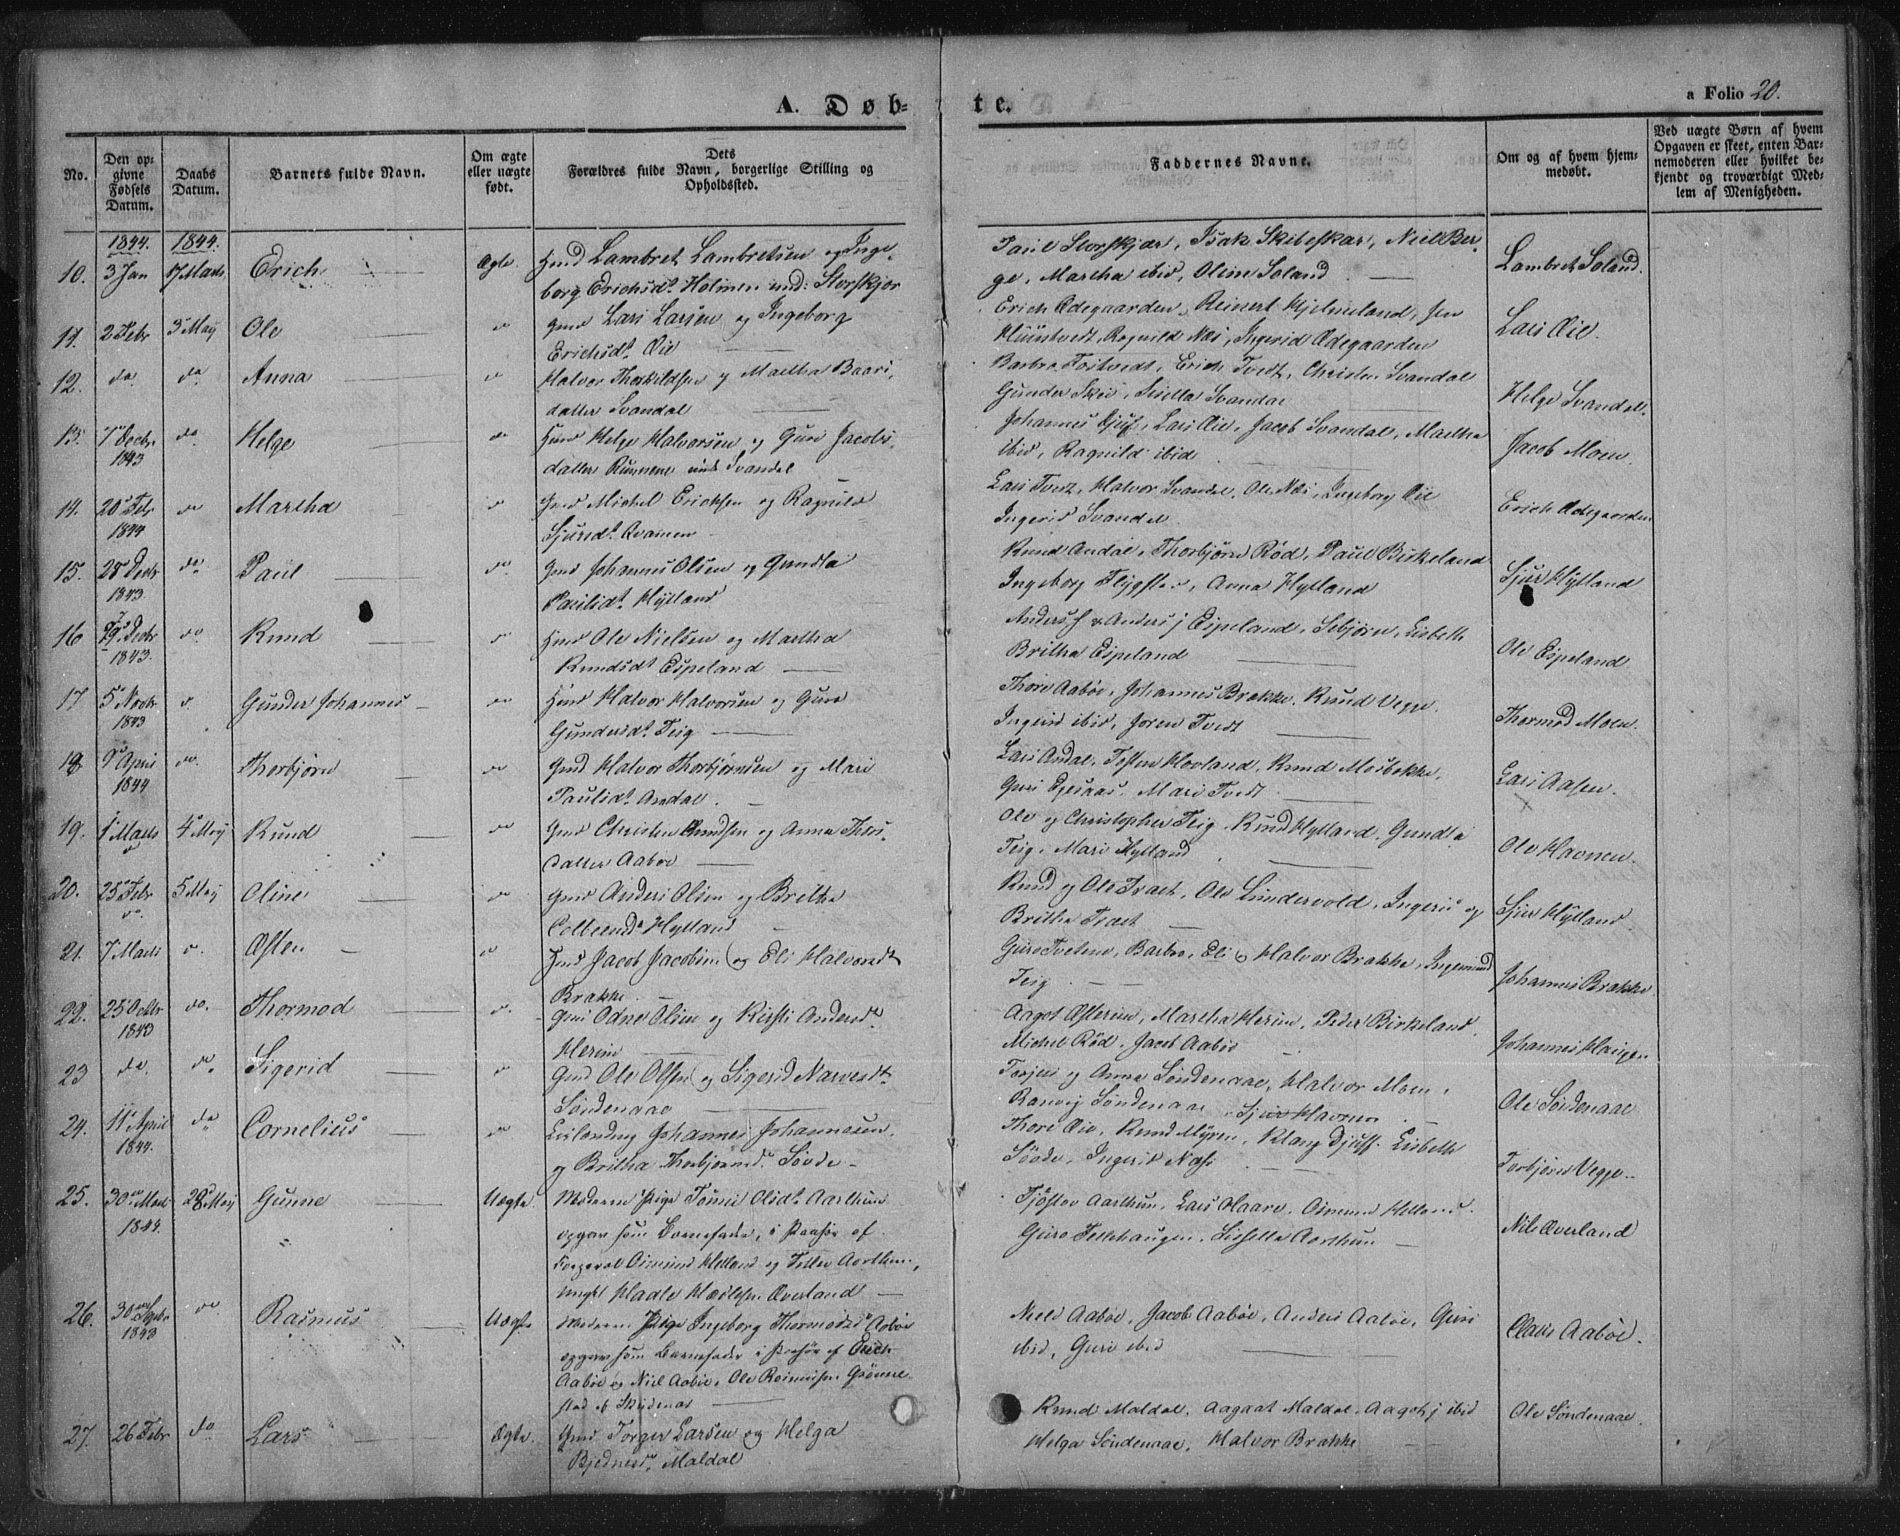 A. Døb- te.
a Folio 20.
No.
Den op-
givne
Fødsels
Datum.
Daabs
Datum.
Barnets fulde Navn.
Om ægte
eller uægte
født.
Dets
Forældres fulde Navn, borgerlige Stilling og
Opholdssted.
Faddernes Navne.
Om og af hvem hjem-
medøbt.
Ved uægte Børn af hvem
Opgaven er skeet, enten Bar-
nemoderen eller hvilket be-
kjendt og troværdigt Med-
lem af Menigheden.
1844. 1844.
10. 3 Jan 17 Marts Erich Ægte. Huusmd Lambret Lambretsen og Inge-
borg Erichsdt. Holmen und: Storskjor
Paul Storskjær, Isak Skibeskar, Niel Ber-
ge, Martha ibid, Oline Soland
Lambret Soland.
11. 2 Febr 3 May Ole do Gmd Lars Larsen og Ingeborg
Erichsdt. Øie
Erich Ødegaarden, Reinert Hjelmeland,
Ragnild Næs, Ingerid Ødegaarden
Lars Øie.
12. do do Anna do Halvor Thorkildsen og Martha Baars-
datter Svandal
Barbro Tostvedt, Erich Tvedt, Christen Svandal
Gunder Skei, Sisella Svandal
Helge Svandal.
13. 7 Decbr 1843 do Helge do Huusmd Helge Halvorsen og Guri Jacobs-
datter Runnene und Svandal
Johannes Djuf, Lars Øie, Jacob Svandal, Martha
ibid, Ragnild ibid
Jacob Moen.
14. 20 Febr 1844 do Martha do Gmd Michel Ericksen og Ragnild
Sjursdt. Qvamen
Lars Tvedt, Halvor Svandal, Ole Næs, Ingeborg Øie
Ingerid Svandal
Erich Ødegaarden
15. 28 Decbr 1843 do Paul do Gmd Johannes Olsen og Gundla
Paulsdt. Hylland
Knud Andal, Thorbjørn Rød, Paul Birkeland
Ingeborg, Anna Hylland
Sjur Hylland
16 Decbr 1843. do Knud do Huusmd Ole Nielsen og Martha
Knudsdt Espeland
Anders & Anders j Espeland, Sebjørn, Lisbeth
Britha Espeland
Ole Espeland
17 5 Novbr 1843 do Gunder Johannes do Huusmd Halvor Halvorsen og Guro
Gundersdt. Teig
Thore Aabøe, Johannes Brakke, Knud Vegge,
Ingerid ibid, Joren Tvedt
Thormod Moen.
18 9 April 1844 do. Thorbjørn do Gmd Halvor Thorbjørnsen og Mari
Paulsdt. Andal.
Lars Andal, Tosten Hovland, Knud Mosbække,
Guri Egesaas, Mari Tvedt
Lars Aasen.
19. 1 Marts do 4 May Knud do Gmd Christen Knudsen og Anna Thors-
datter Aabøe
Ole og Christopher Teig, Knud Hylland, Gundla
Teig, Mari Hylland
Ole Havnen.
20. 25 Febr do. 5 May Oline do Gmd Anders Olsen og Britha
Colbeensdt Hylland
Knud og Ole Traet, Ole Lundervold, Ingerid og
Britha Traet
Sjur Hylland.
21. 7 Marts do. Østen do Huusmd Jacob Jacobsen og Eli Halvorsdt
Brakke.
Guro Tvetene, Barbro, Eli & Halvor Brakke, Ingemund
Teig.
Johannes Brakke.
22. 25 Octbr 1843 do. Thormod do. Gmd Odne Olsen og Kirsti Andersdt.
Herim
Aagot Østerim, Martha Herim, Peder Birkeland.
Michel Rød, Jacob Aabøe
Johannes Haugen
23 do. do Sigerid do Gmd Ole Olsen og Sigerid Narvesdt.
Søndenaae
Torjus og Anna Søndenaae, Halvor Moen,
Ranveig Søndenaae, Sjur Havnen
Ole Søndenaae
24. 11 April 1844. do Cornelius do Johannes Johannesen
og Britha Thorbjørnsd. Søvde
Thore Øie, Knud Myren, Klang Djuf, Lisbeth
Søvde, Ingerid Næs
Torbjørn Vegge.
25. 30 Marts 1844. 28 May Gunne Uægte. Moderen Pige Tonni Olsdt. Aarthun
opgav som Barnefader, i Nærhør af
Osmund Helland og Aarthun,
Ungkl Hadle Hadlesen Øverland
Tjøstov Aarthun, Lars Haare, Osmund Helland.
Guro Tellehaugen, Lisbetha Aarthun
Nils Øverland
26. 30 1843 do Rasmus Uægte Moderen Pige Ingeborg Thormodsd Aabøe
opgav som Barnefader i Nærhør af Erich
Aabøe og Niel Aabøe, Ole Rasmusen Grønne-
stad af Skudenes
Niels Aabøe, Jacob Aabøe, Anders Aabøe, Guri
ibid, Guri ibid
Aabøe.
27. 26 Febr do Lars Ægte. Gmd Torger Larsen og Helga
Bjednesd. Maldal
Knud Maldal, Aagaat Maldal, Aagot j ibid
Helga Søndenaae, Halvor Brakke
Ole Søndenaae.